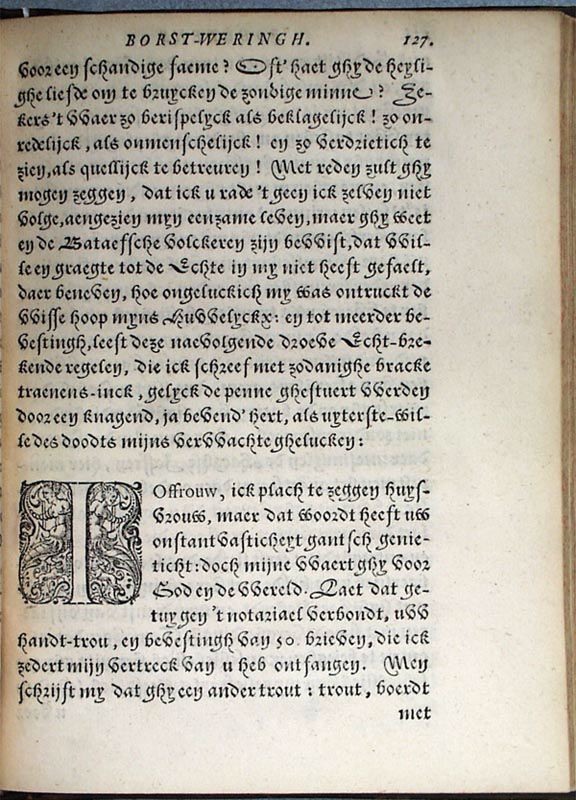 BORST-WERINGH. 127.
voor een schandige faeme? Ost' haet ghy de heyli-
ghe liefde om te bruycken de zondige minne? Ze-
kers 't vvaer zo berispelyck als beklagelijck! zo on-
redelijck, als onmenschelijck! en zo verdrietich te
zien, als quellijck te betreuren! Met reden zult ghy
mogen zeggen, dat ick u rade 't geen ick zelven niet
volge, aengezien myn eenzame leven, maer ghy weet
en de Bataefsche volckeren zijn bevvist, dat vvil-
le en graegte tot de Echte in my niet heeft gefaelt,
daer beneven, hoe ongeluckich my was ontruckt de
vvisse hoop myns Huvvelyckx: en tot meerder be-
vestingh, leest deze naevolgende droeve Echt-bre-
kende regelen, die ick schreef met zodanighe bracke
traenens-inck, gelyck de penne ghestuert vverden
door een knagend, ja bevend' hert, als uyterste-wil-
le des doodts mijns vervvachte ghelucken:
IOffrouw, ick plach te zeggen huys-
vrouw, maer dat woordt heeft uw
onstantvasticheyt gantsch genie-
ticht: doch mijne vvaert ghy voor
God en de vvereld. Laet dat ge-
tuygen 't notariael verbondt, uvv
handt-trou, en bevestingh van 50. brieven, die ick
zedert mijn vertreck van u heb ontfangen. Men
schrijft my dat ghy een ander trout: trout, voerdt
met